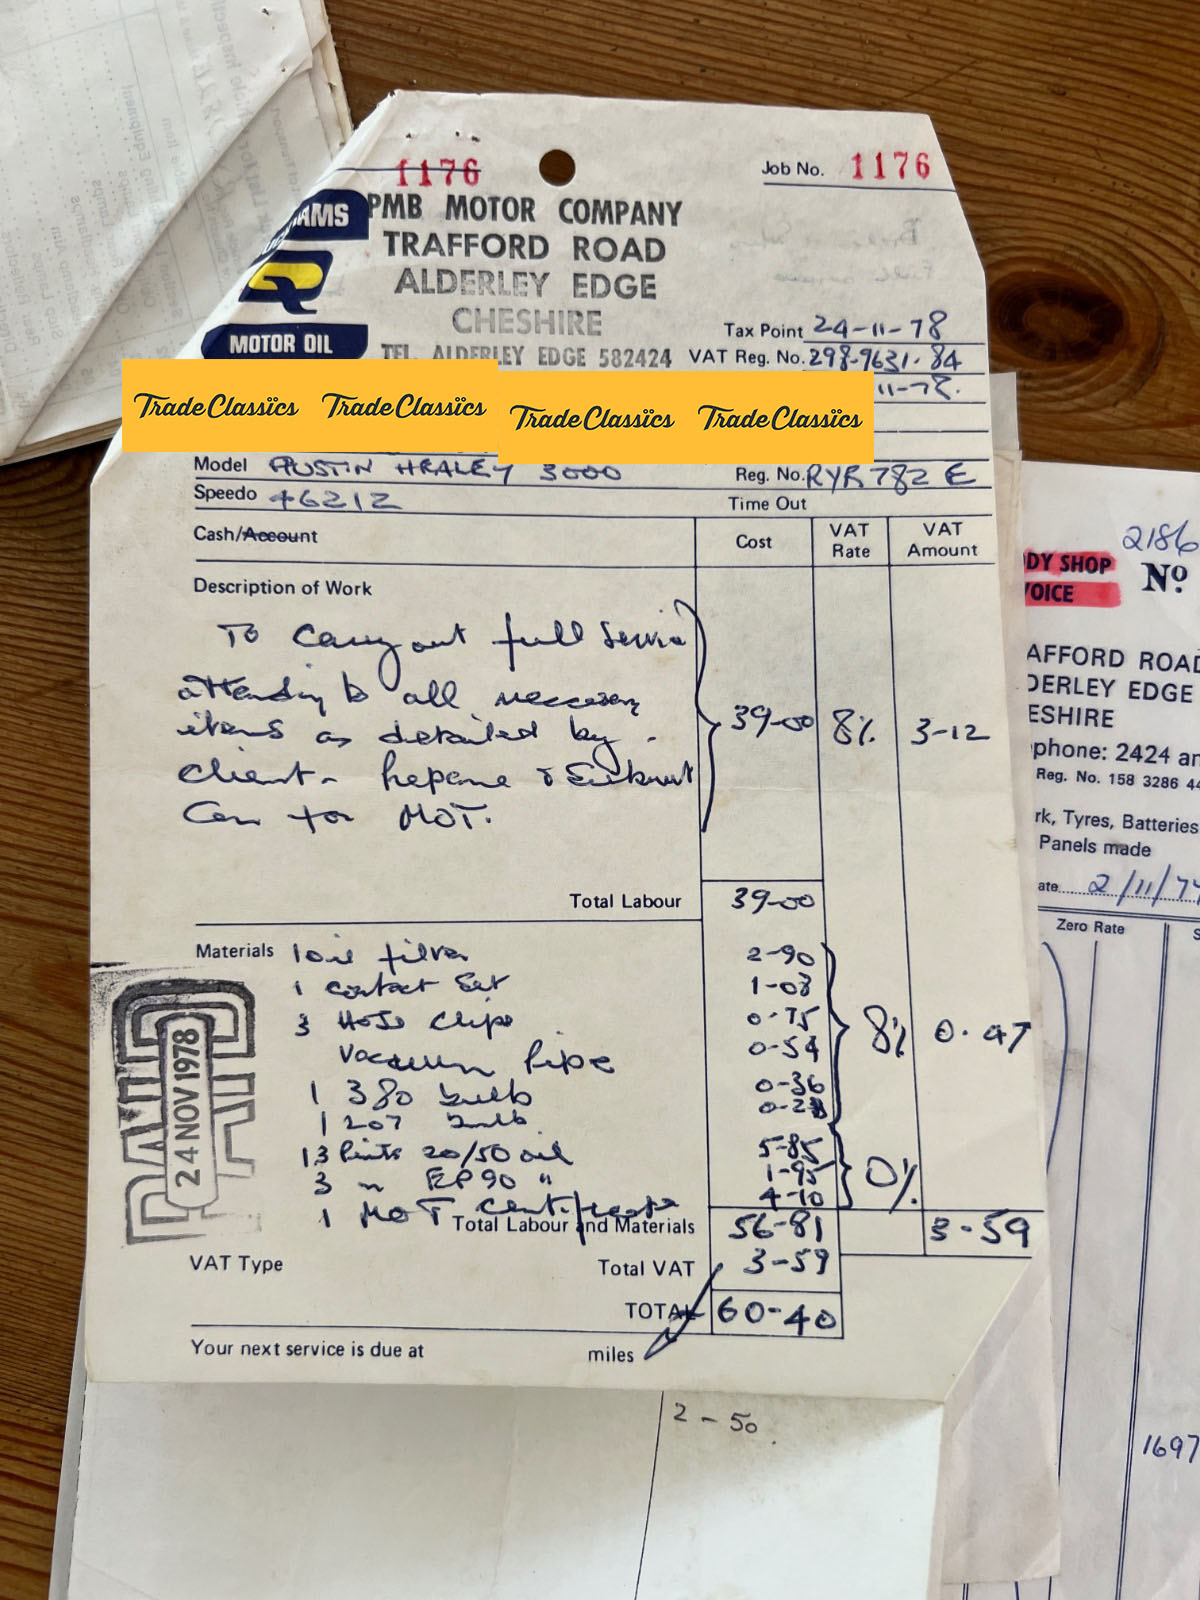 1176
Job No. 1176
AMS
MOTOR OIL
PMB MOTOR COMPANY
TRAFFORD ROAD
ALDERLEY EDGE
CHESHIRE
TEL. ALDERLEY EDGE 582424
Tax Point 24-11-78
VAT Reg. No. 298-9631-84
11-78.
TradeClassics TradeClassics TradeClassics TradeClassics
Model AUSTIN HEALEY 3000
Reg. No. RYR 782 E
Speedo 46212
Time Out
Cash/Account
Cost
VAT Rate
VAT Amount
Description of Work
To carry out full service
attending to all necessary
items as detailed by
client - prepare & submit
Car for MOT.
39-00 8% 3-12
Total Labour 39-00
Materials 1 oil filter 2-90
1 contact Set 1-08
3 Hose clips 0-75
Vacuum Pipe 0-54
1 380 bulb 0-36
1 207 bulb
8% 0.47
13 Pints 20/50 oil 5-85
3 " EP90 " 1-95
1 MOT Certificate 4-10
0%
Total Labour and Materials 56-81 3-59
VAT Type
Total VAT 3-59
TOTAL 60-40
Your next service is due at miles
PAID
24 NOV 1978
2-50.
2186
DY SHOP
VOICE
No
AFFORD ROAD
DERLEY EDGE
ESHIRE
phone: 2424 an
Reg. No. 158 3286 44
rk, Tyres, Batteries
Panels made
ate 2/11/7
Zero Rate
1697